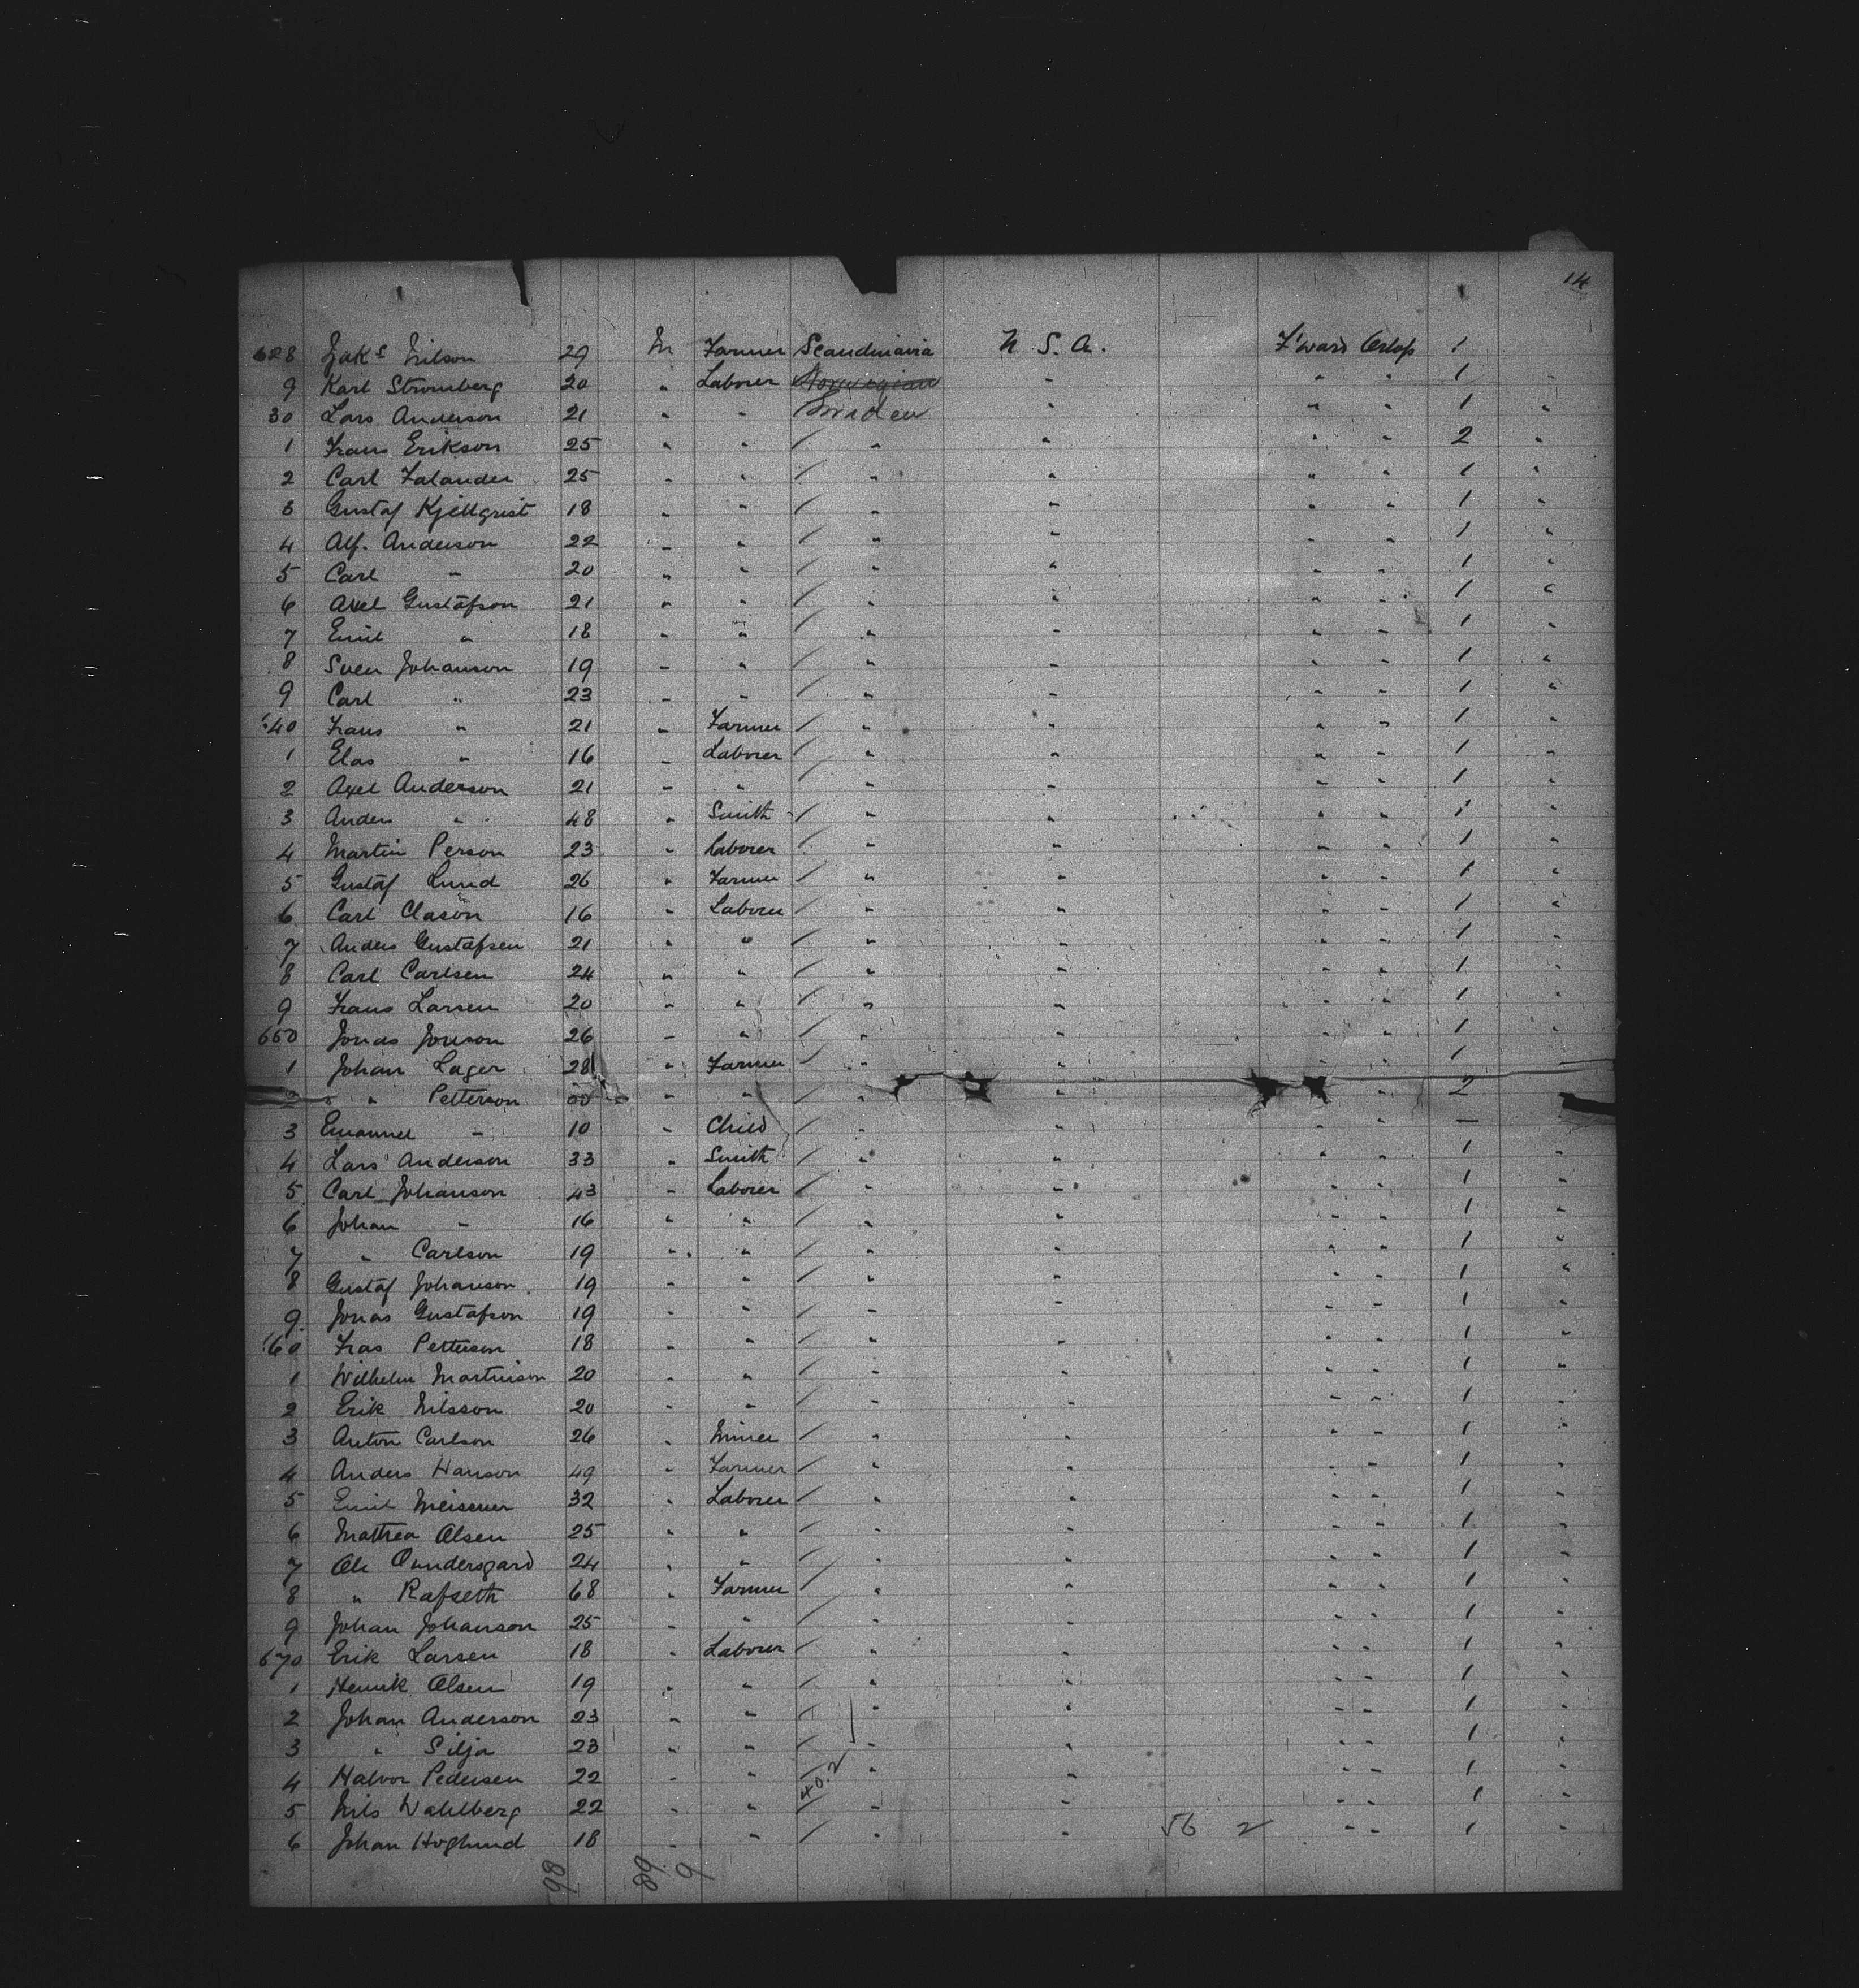 14
628 Jaks Nilson 29 M Farmer Scandinavia U. S. A. F'ward Orlop 1
9 Karl Stromberg 20 " Laborer Norwegian " " " 1
30 Lars Anderson 21 " " Sweden " " " 1 "
1 Frans Erikson 25 " " / " " " " 2 "
2 Carl Falander 25 " " / " " " " 1 "
3 Gustaf Kjellqrist 18 " " / " " " " 1 "
4 Alf. Anderson 22 " " / " " " " 1 "
5 Carl " 20 " " / " " " " 1 "
6 Axel Gustafson 21 " " / " " " " 1 "
7 Emil " 18 " " / " " " " 1 "
8 Sven Johanson 19 " " / " " " " 1 "
9 Carl " 23 " " / " " " " 1 "
640 Frans " 21 " Farmer / " " " " 1 "
1 Elas " 16 " Laborer / " " " " 1 "
2 Axel Anderson 21 " " / " " " " 1 "
3 Anders " 48 " Smith / " " " " 1 "
4 Martin Person 23 " Laborer / " " " " 1 "
5 Gustaf Lund 26 " Farmer / " " " " 1 "
6 Carl Clason 16 " Laborer / " " " " 1 "
7 Anders Gustafsen 21 " " / " " " " 1 "
8 Carl Carlsen 24 " " / " " " " 1 "
9 Frans Larsen 20 " " / " " " " 1 "
650 Jonas Jonson 26 " " / " " " " 1 "
1 Johan Lager 28 " Farmer / " " " " 1
2 " Petterson " " / " " " 2
3 Emanuel " 10 " Child / " " " " —
4 Lars Anderson 33 " Smith / " " " " 1 "
5 Carl Johanson 43 " Laborer / " " " " 1 "
6 Johan " 16 " " / " " " " 1 "
7 " Carlson 19 " " / " " " " 1 "
8 Gustaf Johanson 19 " " / " " " " 1 "
9 Jonas Gustafson 19 " " / " " " " 1 "
660 Fras Petterson 18 " " / " " " " 1 "
1 Wilhelm Martinson 20 " " / " " " " 1 "
2 Erik Nilsson 20 " " / " " " " 1 "
3 Anton Carlson 26 " Miner / " " " " 1 "
4 Anders Hanson 49 " Farmer / " " " " 1 "
5 Emil Meissner 32 " Laborer / " " " " 1 "
6 Mathea Olsen 25 " " / " " " " 1 "
7 Ole 24 " " / " " " " 1 "
8 " Rafseth 68 " Farmer / " " " " 1 "
9 Johan Johanson 25 " " / " " " " 1 "
670 Erik Larsen 18 " Laborer / " " " " 1 "
1 Henrik Olsen 19 " " / " " " " 1 "
2 Johan Anderson 23 " " / " " " " 1 "
3 " Silja 23 " " / " " " " 1 "
4 Halvor Pedersen 22 " " / " " " " 1 "
40.2
5 Nils Wahlberg 22 " " / " " " " 1 "
6 Johan Hoglund 18 " " / " " 56 2 " " 1 "
98 89 9